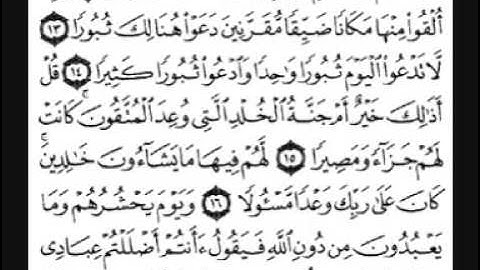 أُلْقُوا۟ مِنْهَا مَكَانًا ضَيِّقًا مُّقَرَّنِينَ دَعَوْا۟ هُنَالِكَ ثُبُورًا ١٣
لَّا تَدْعُوا۟ ٱلْيَوْمَ ثُبُورًا وَٰحِدًا وَٱدْعُوا۟ ثُبُورًا كَثِيرًا ١٤ قُلْ
أَذَٰلِكَ خَيْرٌ أَمْ جَنَّةُ ٱلْخُلْدِ ٱلَّتِى وُعِدَ ٱلْمُتَّقُونَ ۚ كَانَتْ
لَهُمْ جَزَآءً وَمَصِيرًا ١٥ لَّهُمْ فِيهَا مَا يَشَآءُونَ خَٰلِدِينَ ۚ
كَانَ عَلَىٰ رَبِّكَ وَعْدًا مَّسْـُٔولًا ١٦ وَيَوْمَ يَحْشُرُهُمْ وَمَا
يَعْبُدُونَ مِن دُونِ ٱللَّهِ فَيَقُولُ ءَأَنتُمْ أَضْلَلْتُمْ عِبَادِى